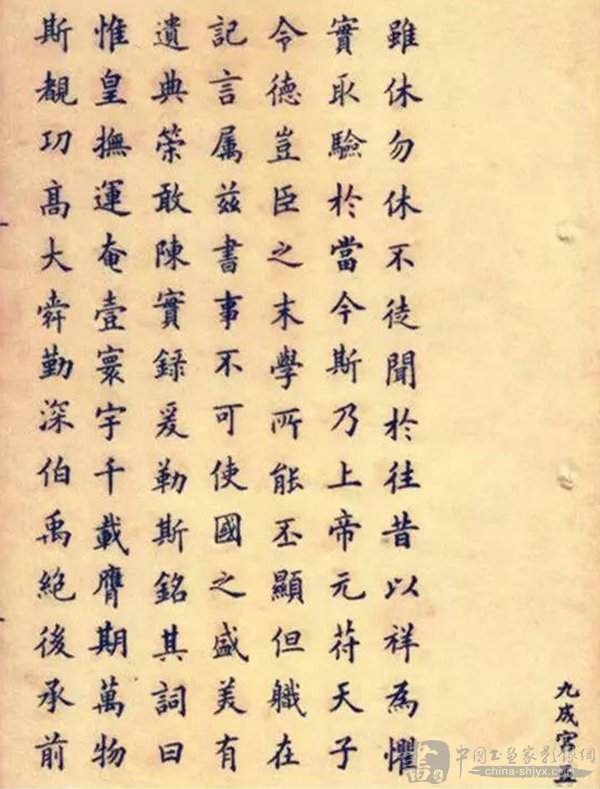 九成宮五
雖休勿休不徒聞於往昔以祥為懼
實取驗於當今斯乃上帝元符天子
令德豈臣之末學所能丕顯但職在
記言属茲書事不可使國之盛美有
遺典策敢陳實録爰勒斯銘其詞曰
惟皇撫運奄壹寰宇千載膺期萬物
斯覩功高大舜勤深伯禹絶後承前
中国书画家影像網
china-shjyx.com